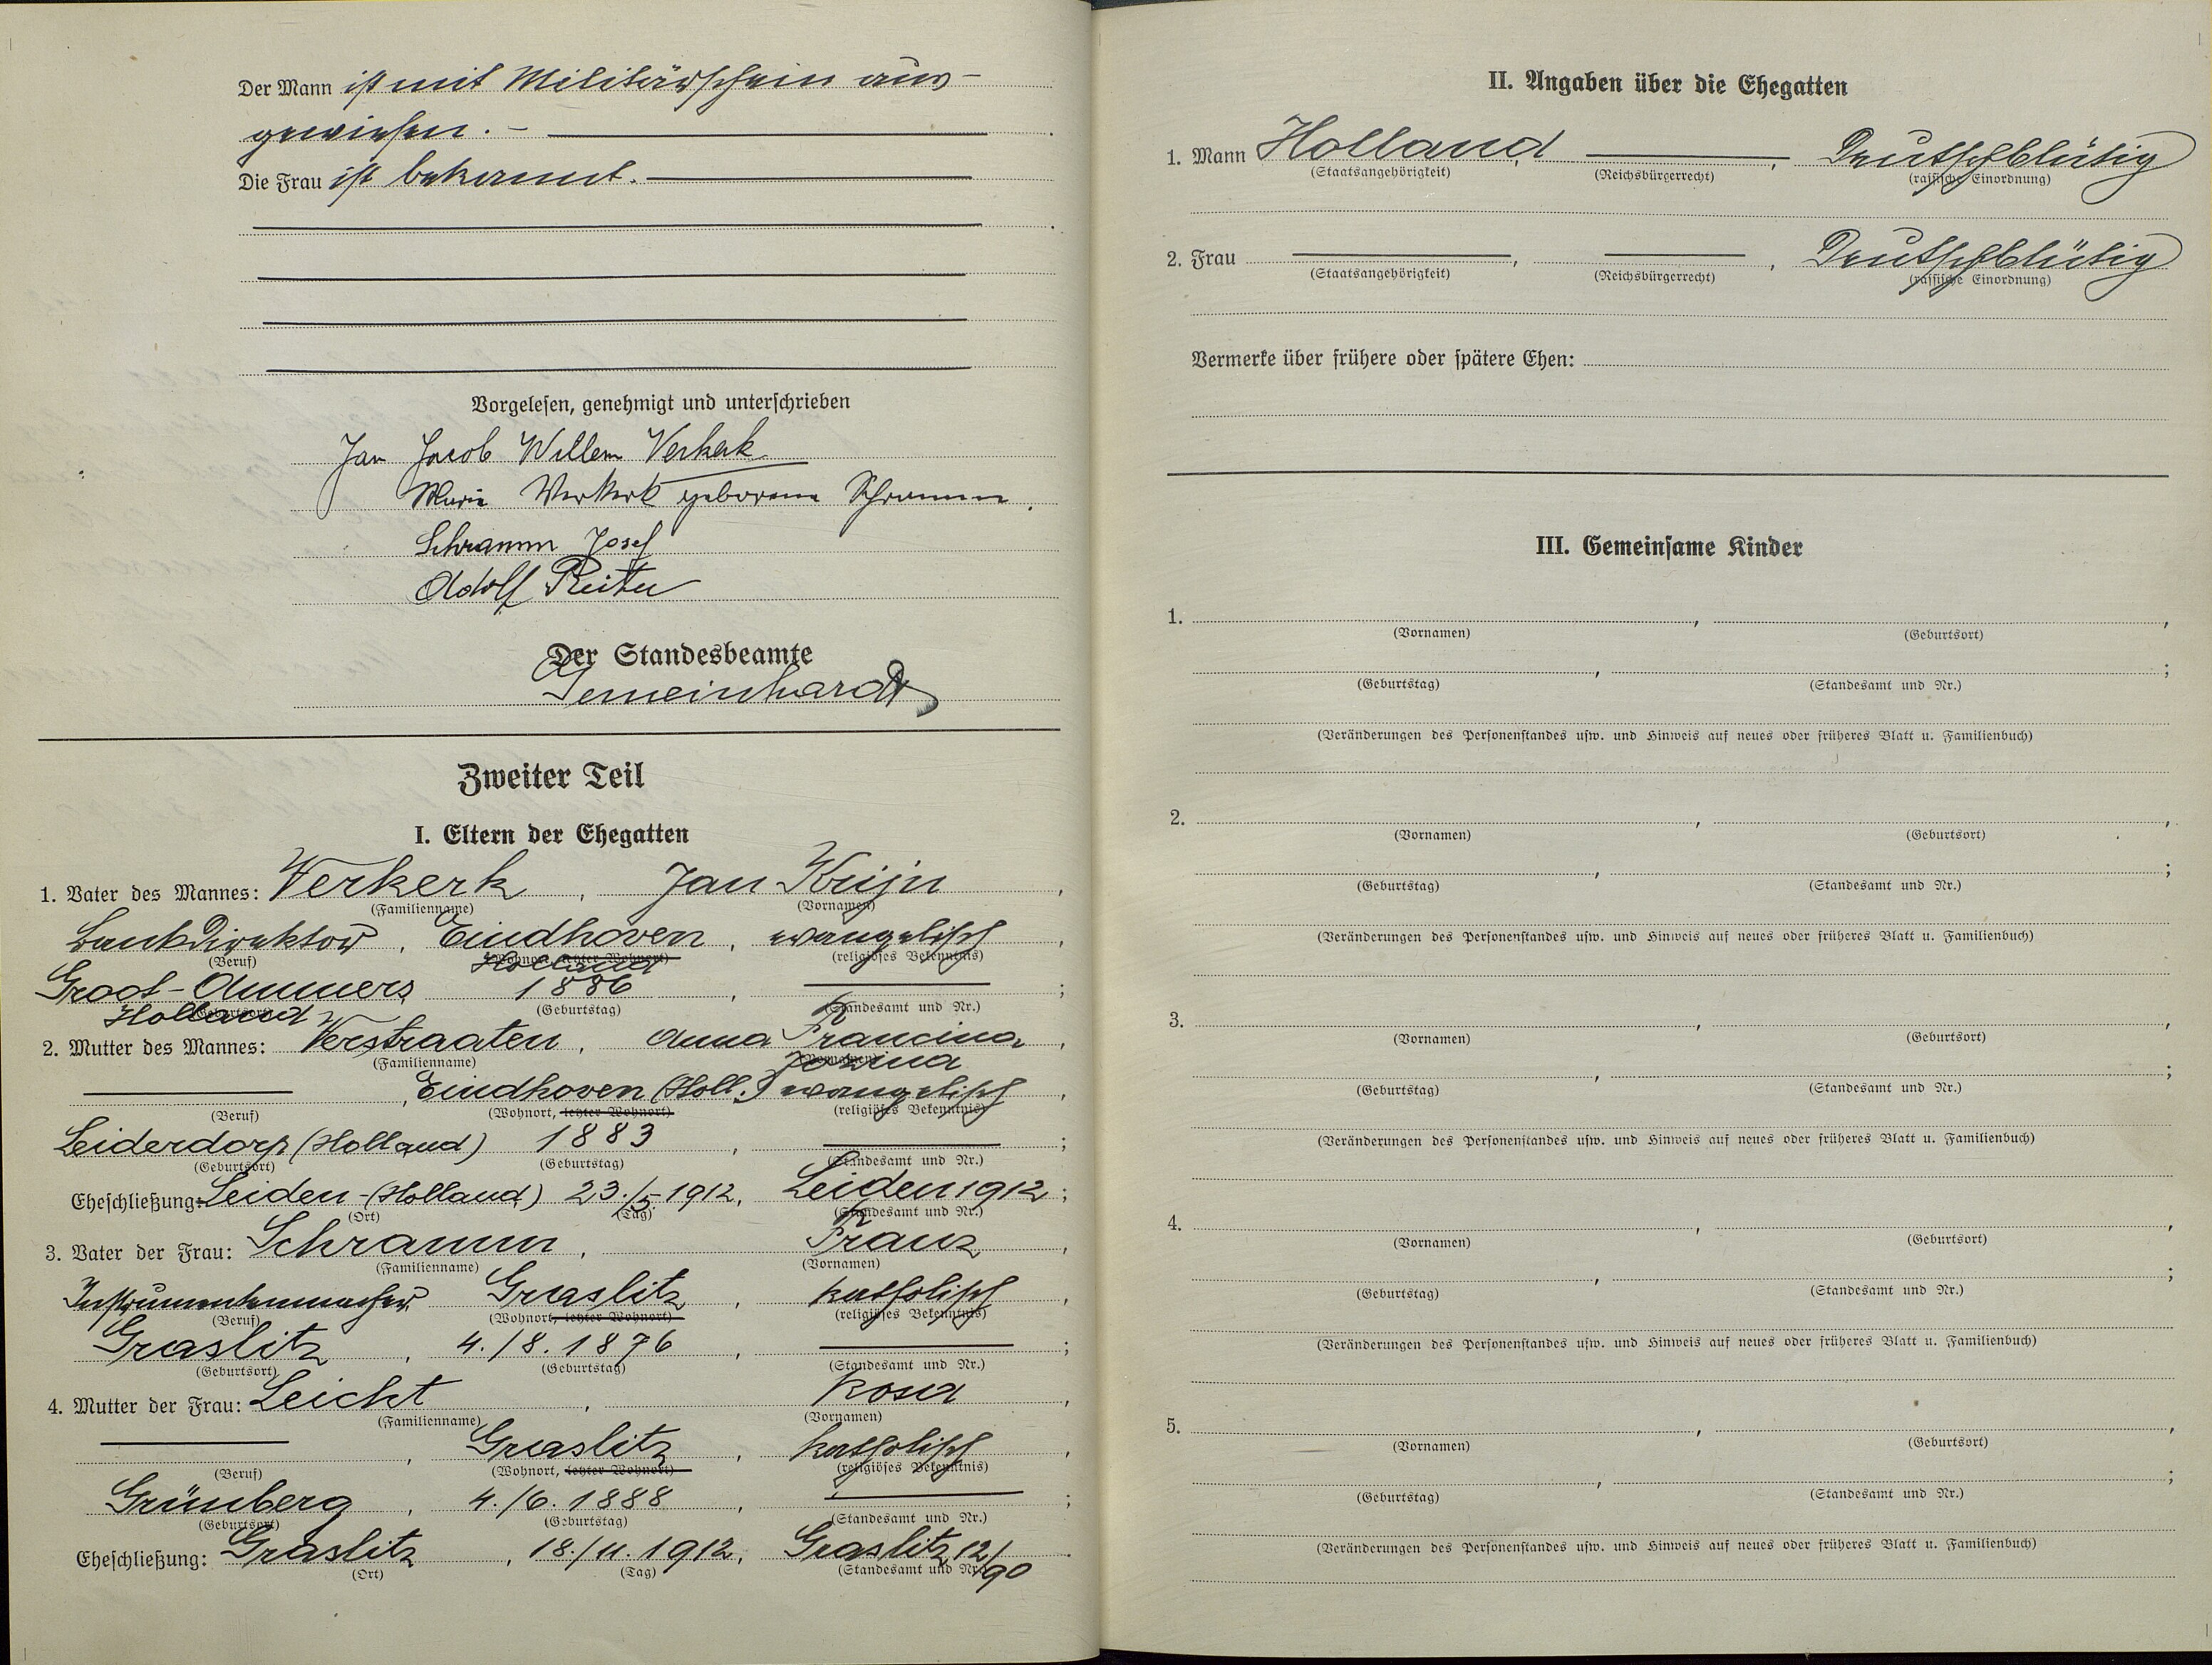 Der Mann ist mit Militärschein aus-
gewiesen. -
Die Frau ist bekannt.
Vorgelesen, genehmigt und unterschrieben
Jan Jacob Willem Verkerk
Marie Verkerk geborene Schramm.
Schramm Josef
Adolf Reiter
Der Standesbeamte
Gemeinhardt
Zweiter Teil
I. Eltern der Ehegatten
1. Vater des Mannes: Verkerk, Jan Krijn,
(Familienname) (Vornamen)
Bankdirektor, Eindhoven, evangelisch,
(Beruf) (Wohnort, letzter Wohnort) (religiöses Bekenntnis)
Holland
Groot-Ammers 1886, ;
Holland (Geburtsort) (Geburtstag) (Standesamt und Nr.)
2. Mutter des Mannes: Verstraaten, Anna Francina,
(Familienname) (Vornamen) Jozina
, Eindhoven (Holl.) evangelisch,
(Beruf) (Wohnort, letzter Wohnort) (religiöses Bekenntnis)
Leiderdorp (Holland) 1883, ;
(Geburtsort) (Geburtstag) (Standesamt und Nr.)
Eheschließung: Leiden-(Holland) 23./5. 1912, Leiden 1912;
(Ort) (Tag) (Standesamt und Nr.)
3. Vater der Frau: Schramm, Franz,
(Familienname) (Vornamen)
Instrumentenmacher Graslitz, katholisch,
(Beruf) (Wohnort, letzter Wohnort) (religiöses Bekenntnis)
Graslitz, 4./8. 1876, ;
(Geburtsort) (Geburtstag) (Standesamt und Nr.)
4. Mutter der Frau: Leicht, Rosa,
(Familienname) (Vornamen)
, Graslitz, katholisch,
(Beruf) (Wohnort, letzter Wohnort) (religiöses Bekenntnis)
Grünberg, 4./6. 1888, ;
(Geburtsort) (Geburtstag) (Standesamt und Nr.)
Eheschließung: Graslitz, 18./11. 1912, Graslitz 12/90.
(Ort) (Tag) (Standesamt und Nr.)
II. Angaben über die Ehegatten
1. Mann Holland, , Deutschblütig
(Staatsangehörigkeit) (Reichsbürgerrecht) (rassische Einordnung)
2. Frau , , Deutschblütig
(Staatsangehörigkeit) (Reichsbürgerrecht) (rassische Einordnung)
Vermerke über frühere oder spätere Ehen:
III. Gemeinsame Kinder
1. , ,
(Vornamen) (Geburtsort)
, ;
(Geburtstag) (Standesamt und Nr.)
(Veränderungen des Personenstandes usw. und Hinweis auf neues oder früheres Blatt u. Familienbuch)
2. , ,
(Vornamen) (Geburtsort)
, ;
(Geburtstag) (Standesamt und Nr.)
(Veränderungen des Personenstandes usw. und Hinweis auf neues oder früheres Blatt u. Familienbuch)
3. , ,
(Vornamen) (Geburtsort)
, ;
(Geburtstag) (Standesamt und Nr.)
(Veränderungen des Personenstandes usw. und Hinweis auf neues oder früheres Blatt u. Familienbuch)
4. , ,
(Vornamen) (Geburtsort)
, ;
(Geburtstag) (Standesamt und Nr.)
(Veränderungen des Personenstandes usw. und Hinweis auf neues oder früheres Blatt u. Familienbuch)
5. , ,
(Vornamen) (Geburtsort)
, ;
(Geburtstag) (Standesamt und Nr.)
(Veränderungen des Personenstandes usw. und Hinweis auf neues oder früheres Blatt u. Familienbuch)